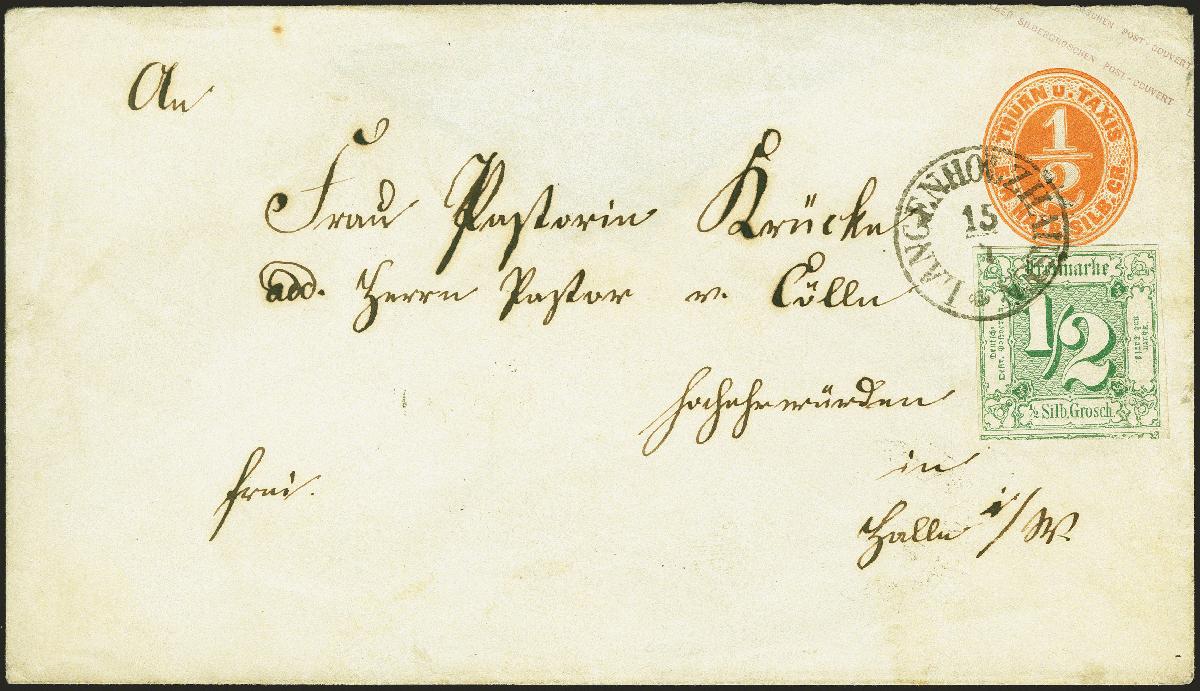 SILBERGROSCHEN POST-COUVERT
SILBERGROSCHEN POST-COUVERT
THURN U. TAXIS
1/2
SILB. GR.
LANGENHOLZHAUSEN
15
An
Frau Pastorin Krücke
add. Herrn Pastor v. Cölln
Hochehrwürden
in
Halle i/W.
frei.
Freimarke
1/2
½ Silb. Grosch.